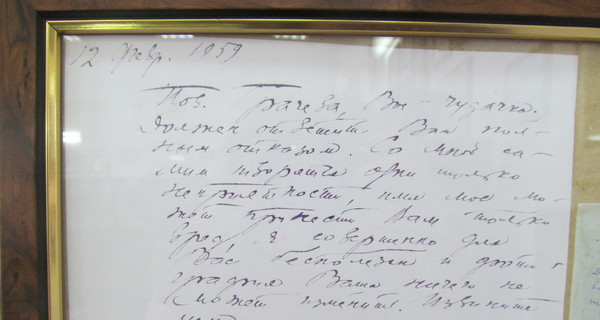 12 февр. 1959
Тов. Грачева, Вы – чудачка.
Должен ответить Вам пол-
ным отказом. Со мной са-
мим творятся одни только
неприятности, имя мое мо-
жет принести Вам только
вред. Я совершенно для
Вас бесполезен и фото-
графия Ваша ничего не
сможет изменить. Извините